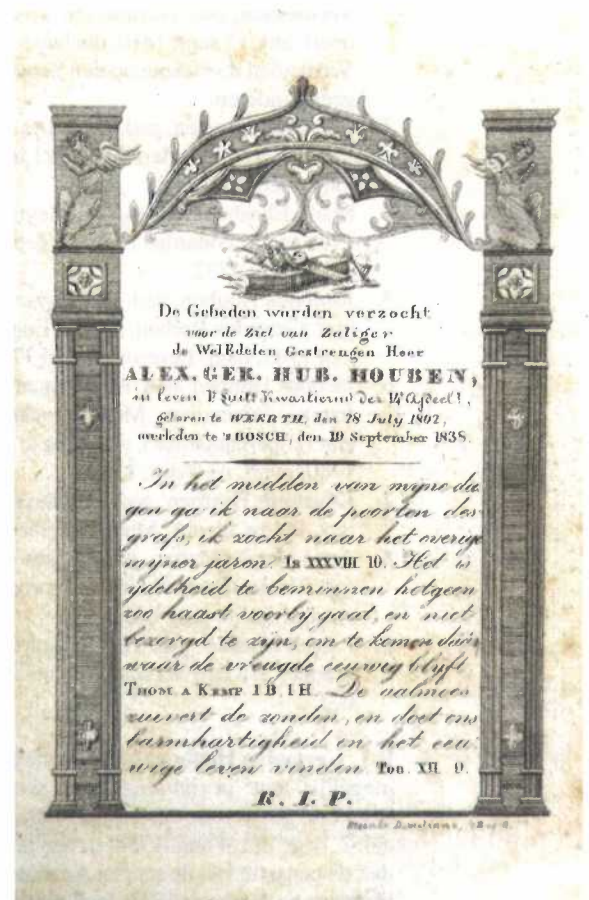 De Gebeden worden verzocht
voor de Ziel van Zaliger
de WelEdelen Gestrengen Heer
ALEX. GER. HUB. HOUBEN,
in leven 1e Luitt Kwartierm! der 14e Afdeel!,
geboren te WEERTH, den 28 July 1802,
overleden te 's BOSCH, den 19 September 1838.
In het midden van myne da
gen ga ik naar de poorten des
grafs, ik zocht naar het overige
mijner jaren. Is XXXVIII. 10. Het is
ydelheid te beminnen hetgeen
zoo haast voorby gaat, en niet
bezorgd te zijn, om te komen daar
waar de vreugde eeuwig blyft
THOM A KEMP 1 B 1 H. De aalmoes
zuivert de zonden, en doet ons
barmhartigheid en het eeu
wige leven vinden. TOB. XII. 9.
R. I. P.